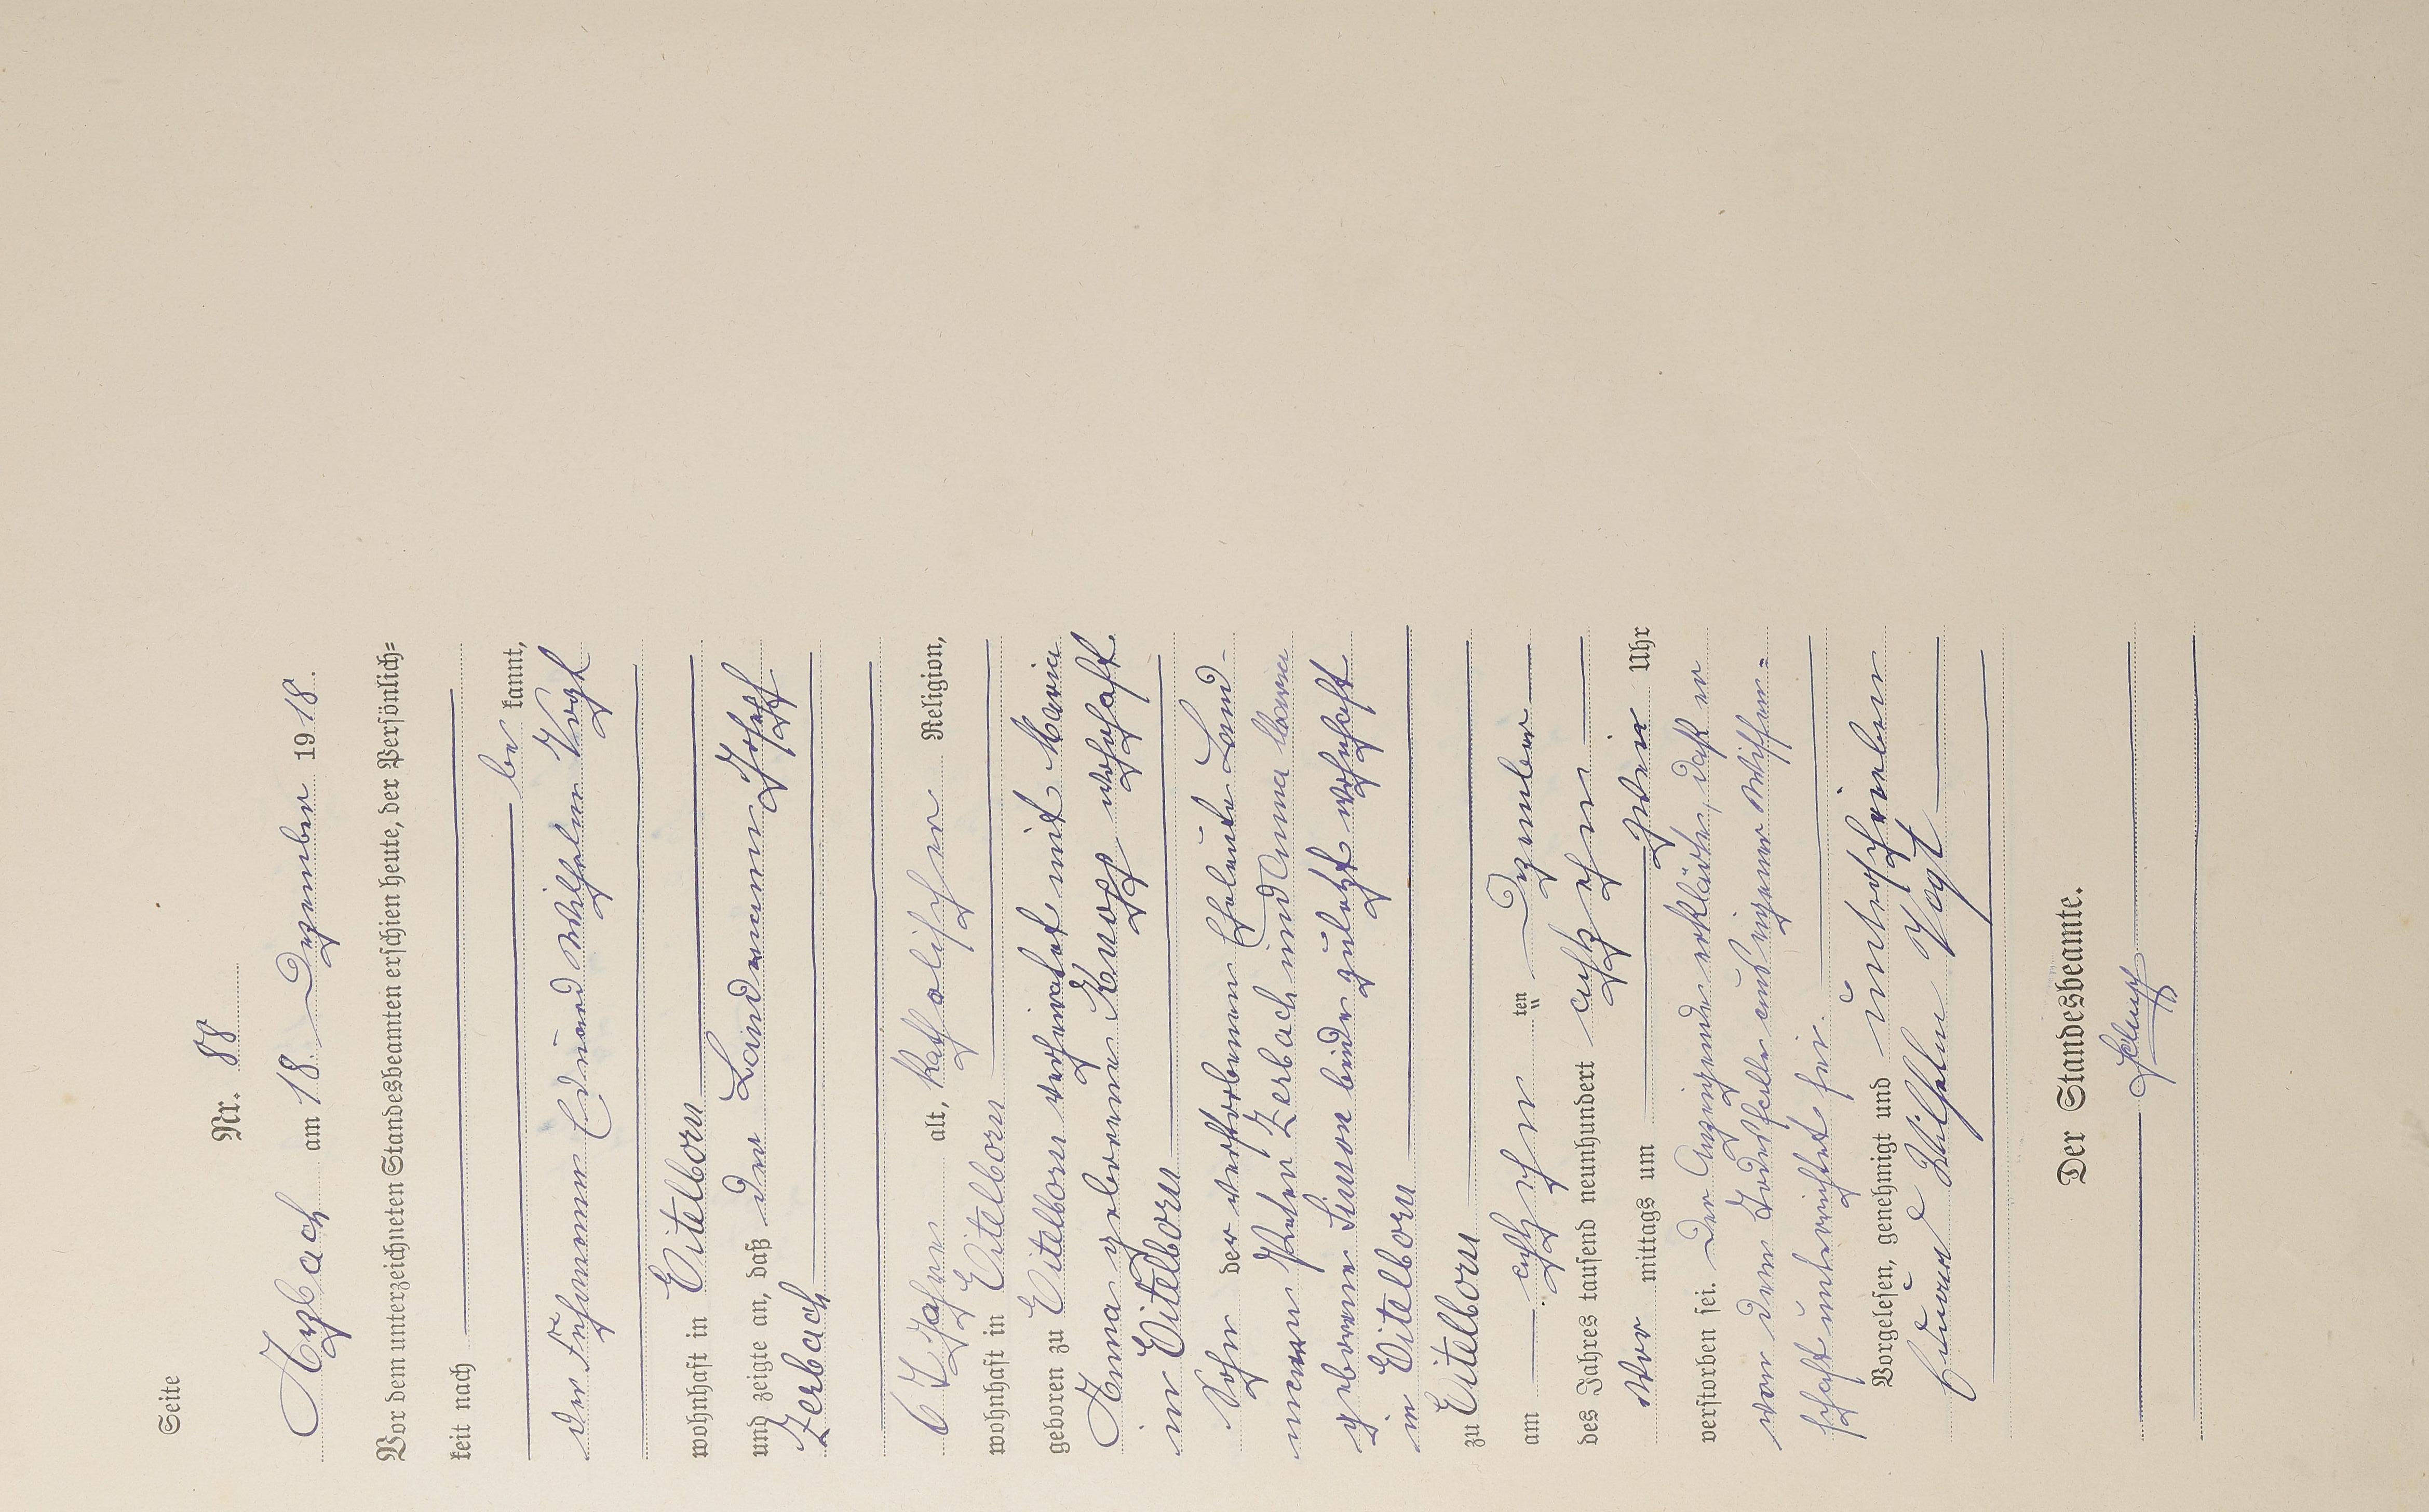 Seite
Nr. 88
Arzbach am 18. Dezember 1918.
Vor dem unterzeichneten Standesbeamten erschien heute, der Persönlich-
keit nach
be kannt,
der Fuhrmann Eduard Wilhelm Vogt
wohnhaft in Eitelborn
und zeigte an, daß der Landmann Josef
Zerbach
67 Jahre alt, katholischer Religion,
wohnhaft in Eitelborn
geboren zu Eitelborn verheiratet mit Maria
Anna geborene Knopp wohnhaft
in Eitelborn
Sohn der verstorbenen Eheleute Land-
mann Peter Zerbach und Anna Maria
geborene Simon beide zuletzt wohnhaft
in Eitelborn
zu Eitelborn
am achtzehn ten Dezember
des Jahres tausend neunhundert achtzehn
Vor mittags um zwei Uhr
verstorben sei. Der Anzeigende erklärte, daß er
von dem Todesfalle aus eigener Wissen=
schaft unterrichtet sei.
Vorgelesen, genehmigt und unterschrieben
Eduard Wilhelm Vogt
Der Standesbeamte.